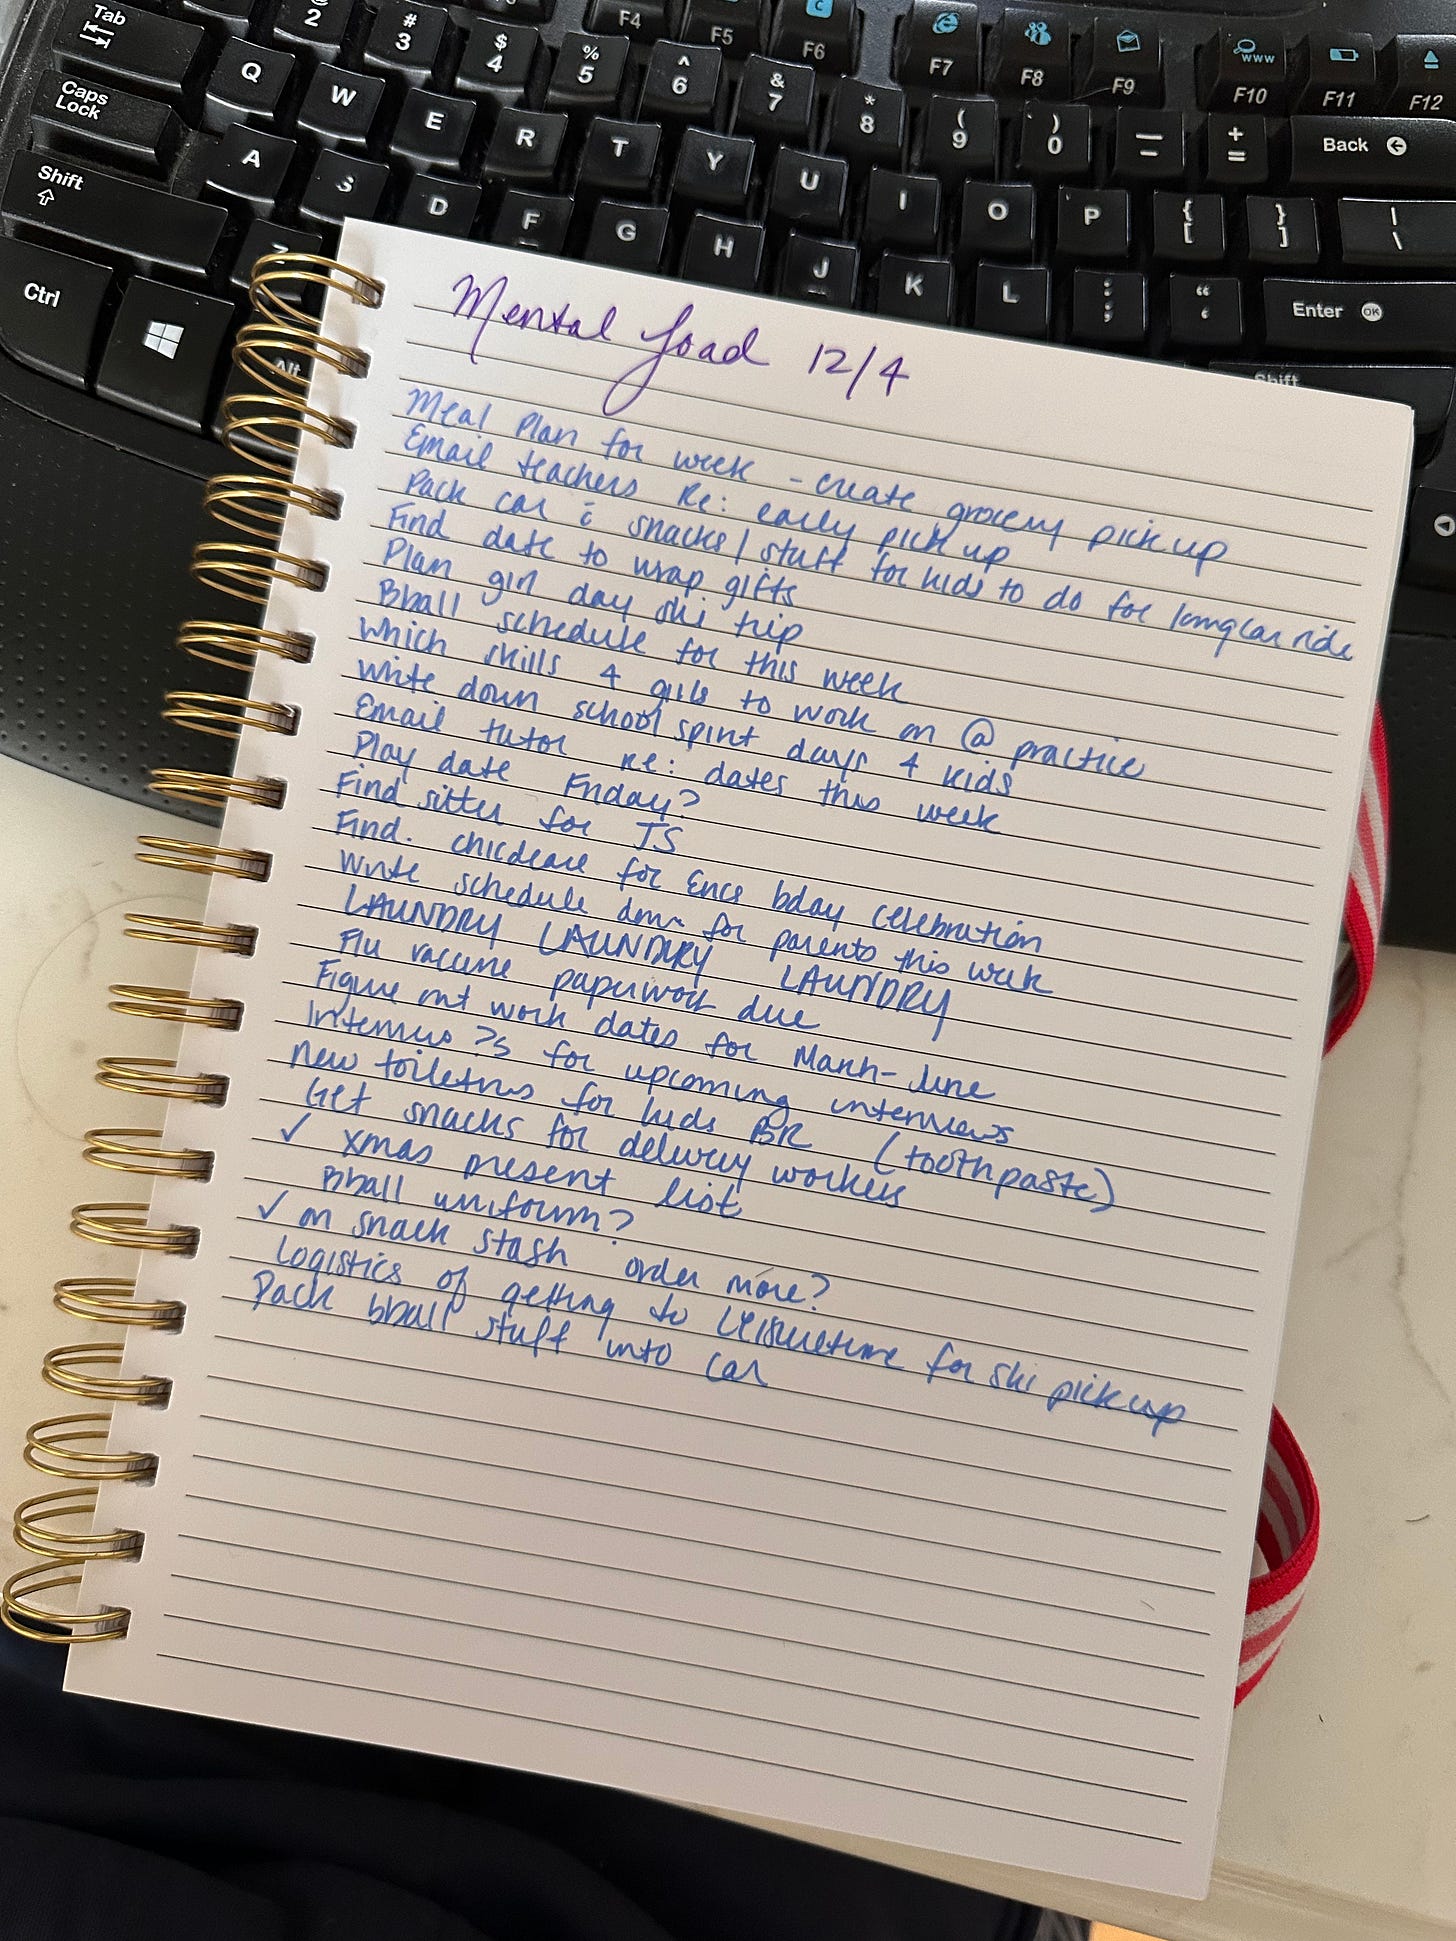 Tab
Caps Lock
Shift
Ctrl
Alt
@ 2
# 3
$ 4
% 5
^ 6
& 7
* 8
( 9
) 0
_ -
+ =
Back
F4
F5
F6
F7
F8
F9
www F10
F11
F12
Q W E R T Y U I O P { [ } ] | \
A S D F G H J K L : ; " ' Enter OK
Z
Shift
Mental Load 12/4
Meal Plan for week - create grocery pick up
Email teachers Re: early pick up
Pack car c̄ snacks/stuff for kids to do for long car ride
Find date to wrap gifts
Plan girl day ski trip
Bball schedule for this week
Which skills 4 girls to work on @ practice
Write down school spirit days 4 kids
Email tutor re: dates this week
Play date Friday?
Find sitter for TS
Find childcare for Erics bday celebration
Write schedule down for parents this week
LAUNDRY LAUNDRY LAUNDRY
Flu vaccine paperwork due
Figure out work dates for March-June
Interview ?s for upcoming interviews
New toiletries for kids BR (toothpaste)
Get snacks for delivery workers
✓ xmas present list
Bball uniform?
✓ on snack stash order more?
Logistics of getting to Leisuretime for ski pickup
Pack bball stuff into car